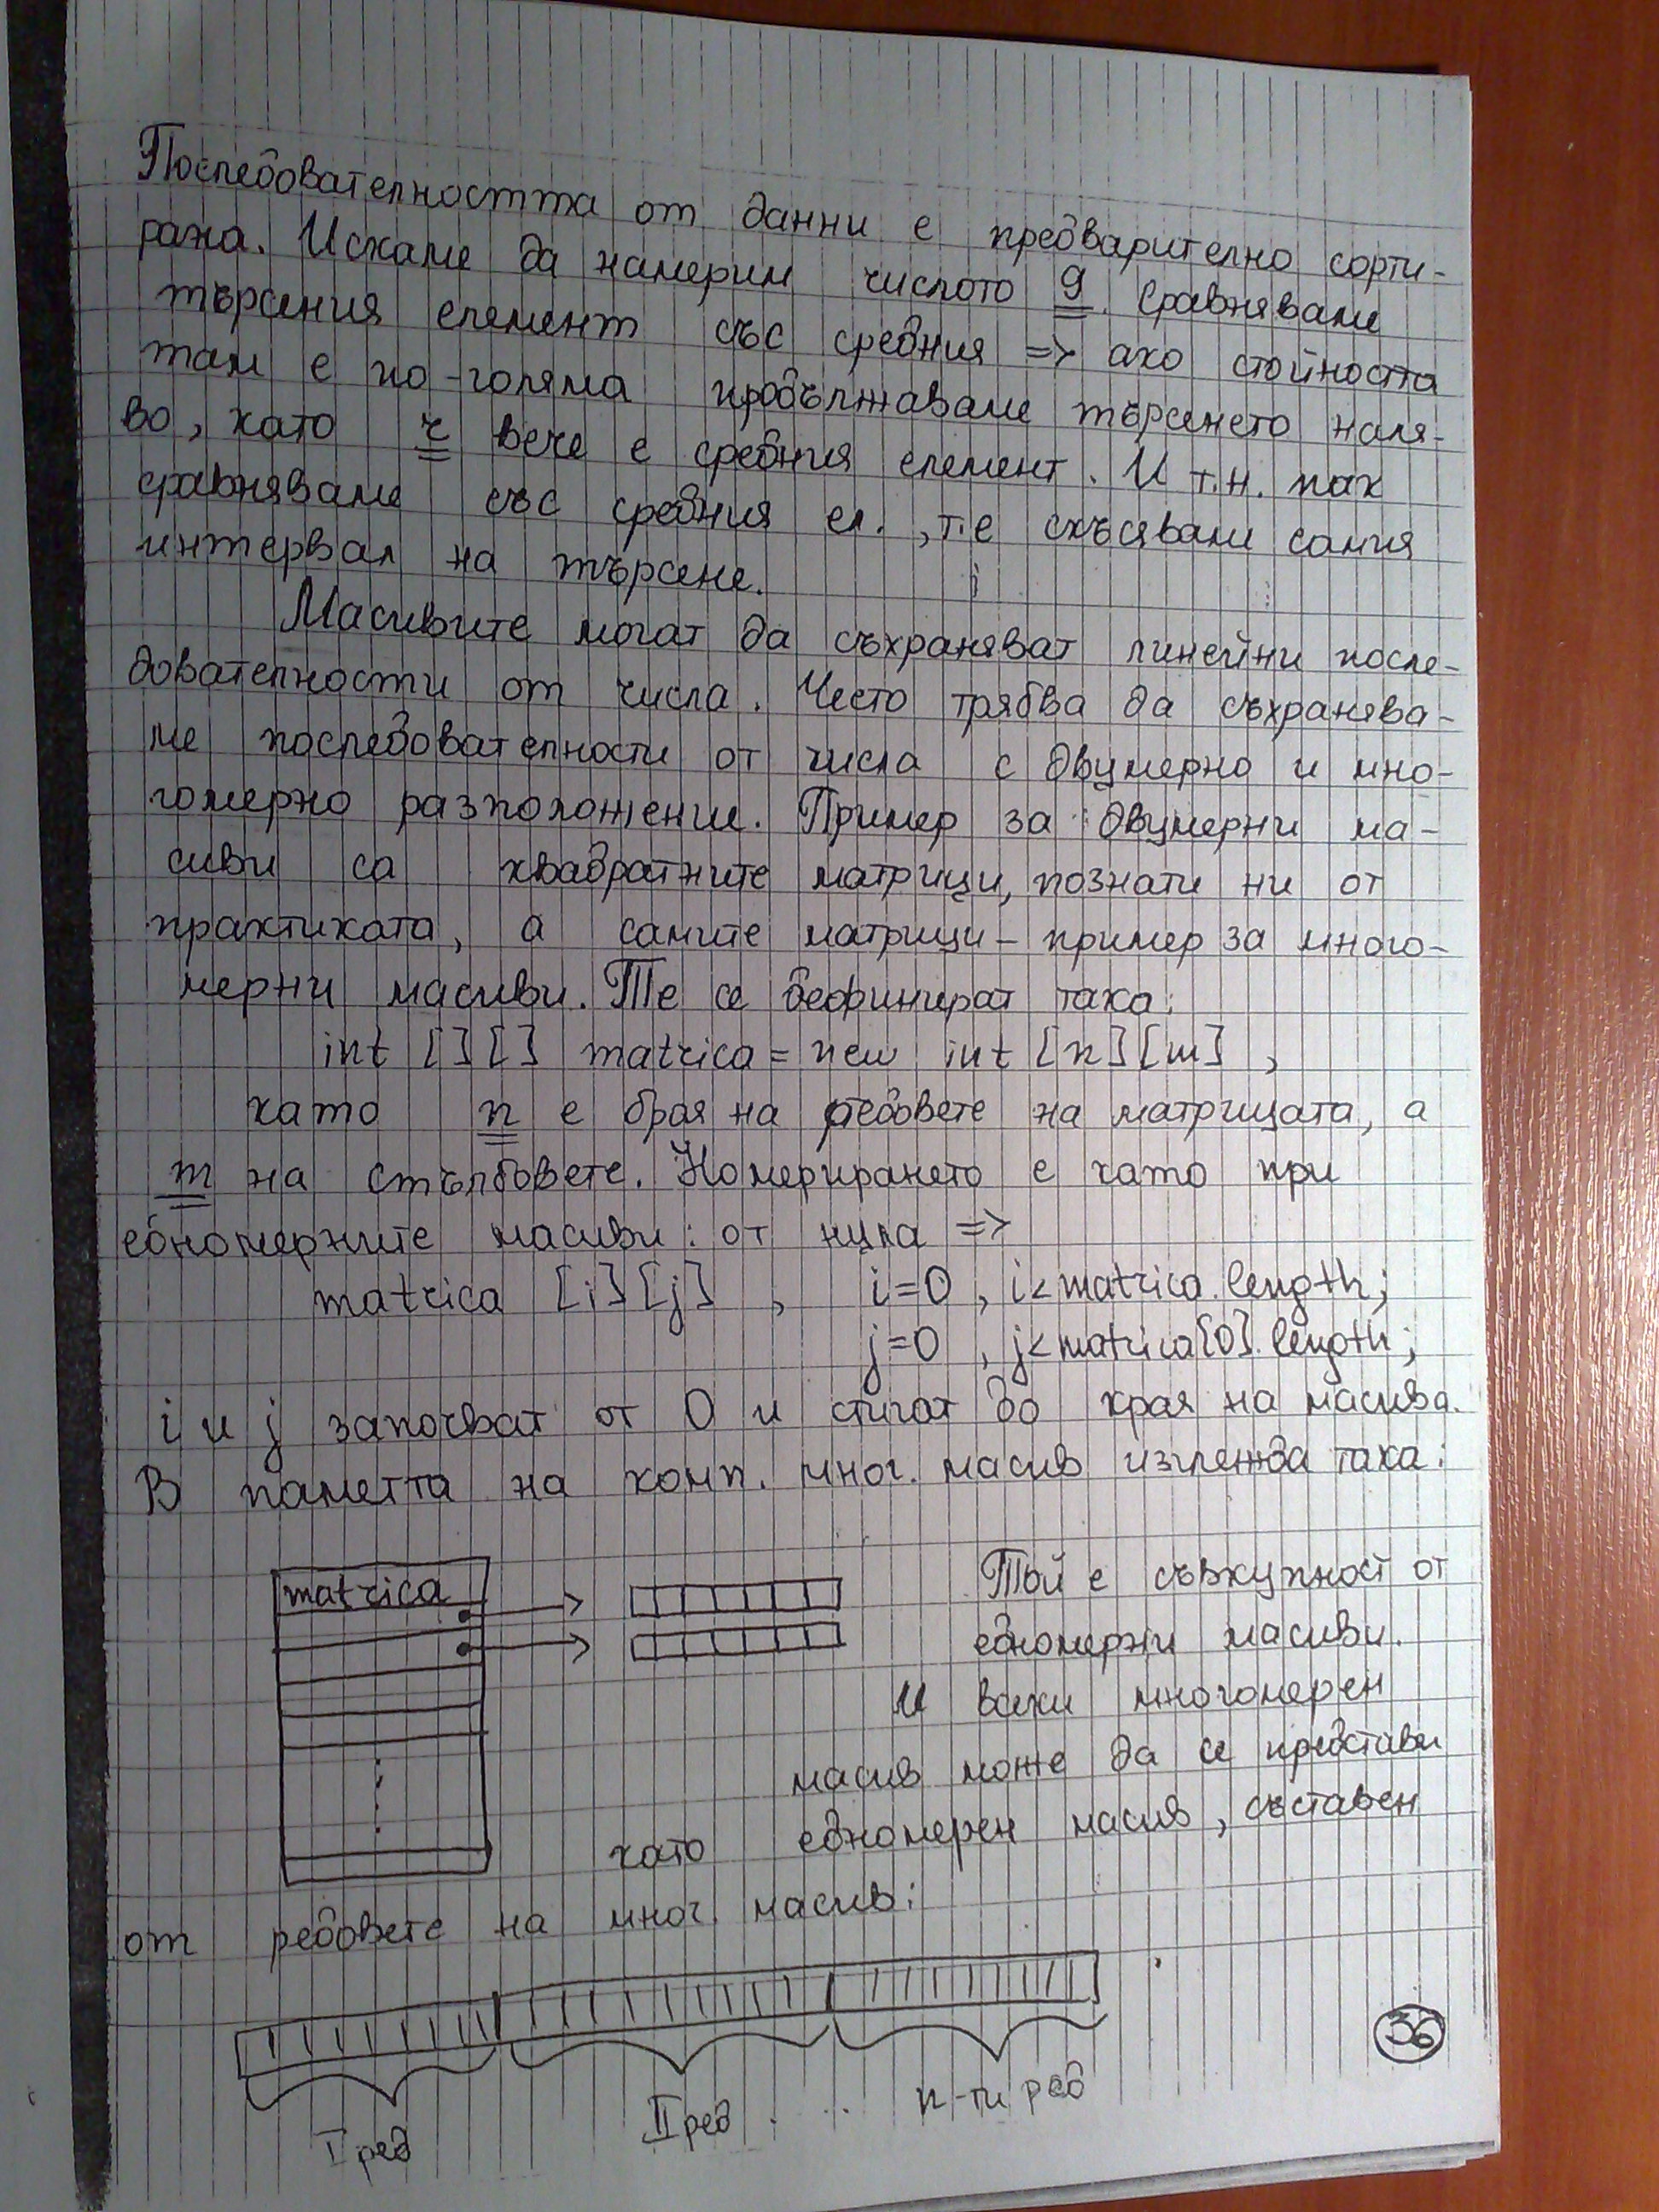 Последователността от данни е предварително сорти-
рана. Искаме да намерим числото 9. Сравняваме
търсения елемент със средния => ако стойността
там е по-голяма продължаваме търсенето наля-
во, като вече е средния елемент. И т.н. пак
сравняваме със средния ел., т.е скъсяваме самия
интервал на търсене.
Масивите могат да съхраняват линейни после-
дователности от числа. Често трябва да съхранява-
ме последователности от числа с двумерно и мно-
гомерно разположение. Пример за двумерни ма-
сиви са квадратните матрици, познати ни от
практиката, а самите матрици - пример за много-
мерни масиви. Те се дефинират така:
int [][] matrica = new int [n][m] ,
като n е броя на редовете на матрицата, а
m на стълбовете. Номерирането е като при
едномерните масиви: от нула =>
matrica [i][j] , i=0 , i<matrica.length;
j=0 , j<matrica[0].length;
i и j започват от 0 и стигат до края на масива.
В паметта на комп. мног. масив изглежда така:
matrica
Той е съвкупност от
едномерни масиви.
И всеки многомерен
масив може да се представи
като едномерен масив, съставен
от редовете на мног. масив:
I ред II ред . . . n-ти ред
36